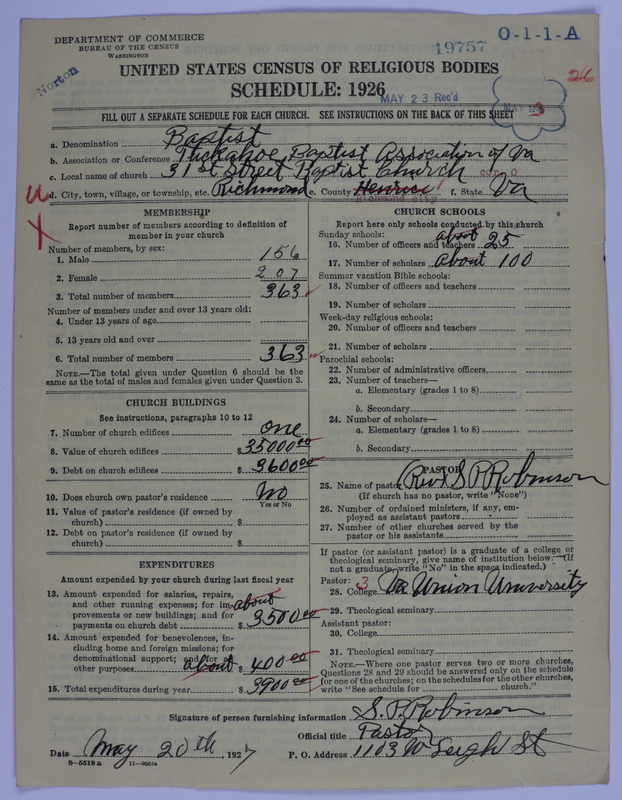 DEPARTMENT OF COMMERCE
BUREAU OF THE CENSUS
WASHINGTON
19757
O-1-1-A
Norton
26
UNITED STATES CENSUS OF RELIGIOUS BODIES
SCHEDULE: 1926
MAY 23 Rec'd
FILL OUT A SEPARATE SCHEDULE FOR EACH CHURCH. SEE INSTRUCTIONS ON THE BACK OF THIS SHEET
a. Denomination Baptist
b. Association or Conference Tuckahoe Baptist Association of Va
c. Local name of church 31st Street Baptist Church
d. City, town, village, or township, etc. Richmond e. County Henrico f. State Va
Richmond city
MEMBERSHIP
Report number of members according to definition of
member in your church
Number of members, by sex:
1. Male 156
2. Female 207
3. Total number of members 363
Number of members under and over 13 years old:
4. Under 13 years of age
5. 13 years old and over
6. Total number of members 363
NOTE.—The total given under Question 6 should be the
same as the total of males and females given under Question 3.
CHURCH BUILDINGS
See instructions, paragraphs 10 to 12
7. Number of church edifices one
8. Value of church edifices $ 35000 00
9. Debt on church edifices $ 3600 00
10. Does church own pastor's residence No
Yes or No
11. Value of pastor's residence (if owned by
church) $
12. Debt on pastor's residence (if owned by
church) $
EXPENDITURES
Amount expended by your church during last fiscal year
13. Amount expended for salaries, repairs,
and other running expenses; for im-
provements or new buildings; and for
payments on church debt about $ 3500 00
14. Amount expended for benevolences, in-
cluding home and foreign missions; for
denominational support; and for all
other purposes about $ 400 00
15. Total expenditures during year $ 3900 00
CHURCH SCHOOLS
Report here only schools conducted by this church
Sunday schools:
16. Number of officers and teachers about 25
17. Number of scholars about 100
Summer vacation Bible schools:
18. Number of officers and teachers
19. Number of scholars
Week-day religious schools:
20. Number of officers and teachers
21. Number of scholars
Parochial schools:
22. Number of administrative officers
23. Number of teachers—
a. Elementary (grades 1 to 8)
b. Secondary
24. Number of scholars—
a. Elementary (grades 1 to 8)
b. Secondary
PASTOR
25. Name of pastor Rev. S. P. Robinson
(If church has no pastor, write "None")
26. Number of ordained ministers, if any, em-
ployed as assistant pastors
27. Number of other churches served by the
pastor or his assistants
If pastor (or assistant pastor) is a graduate of a college or
theological seminary, give name of institution below. (If
not a graduate, write "No" in the space indicated.)
Pastor: 3
28. College Va Union University
29. Theological seminary
Assistant pastor:
30. College
31. Theological seminary
NOTE.—Where one pastor serves two or more churches,
Questions 28 and 29 should be answered only on the schedule
for one of the churches; on the schedules for the other churches,
write "See schedule for church."
Signature of person furnishing information S. P. Robinson
Official title Pastor
Date May 20th, 1927 P. O. Address 1103 W Leigh St
8-5518 a